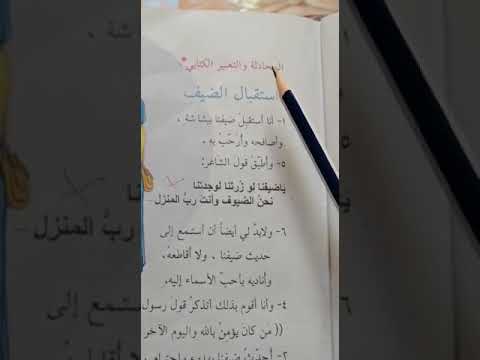 المحادثة والتعبير الكتابي*
استقبال الضيف
١- أنا أستقبل ضيفنا ببشاشة ،
وأصافحه وأرحّبُ به .
٥- وأطبّقُ قول الشاعر:
ياضيفنا لو زُرتنا لوجدتنا
نحنُ الضيوف وأنتَ ربُّ المنزل-
٦- ولابدَّ لي أيضاً أن أستمع إلى
حديث ضيفنا ، ولا أقاطعهُ،
وأناديه بأحبِّ الأسماء إليه،
٤- وأنا أقوم بذلك أتذكرُ قول رسول
(( من كان يؤمنُ بالله واليوم الآخر
٢- أحدّثُ ضيفنا بهدوء واحترام